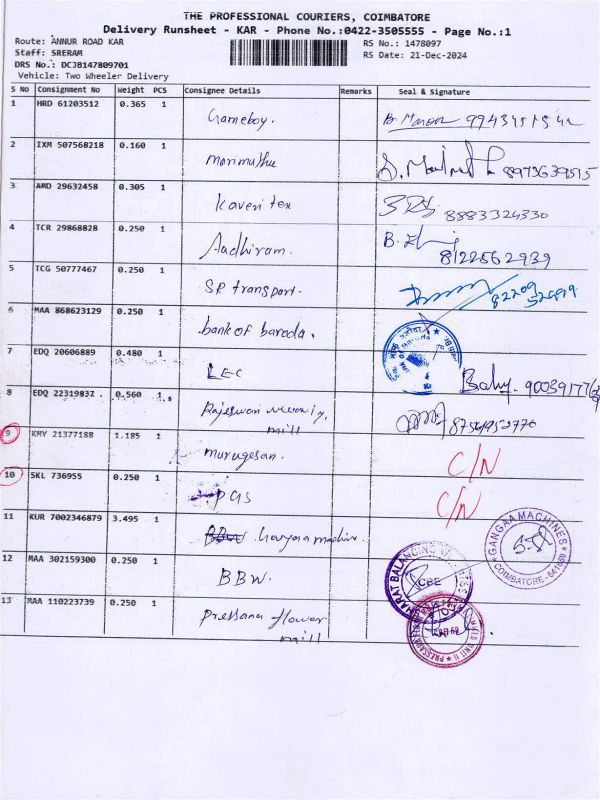 THE PROFESSIONAL COURIERS, COIMBATORE
Delivery Runsheet - KAR - Phone No.:0422-3505555 - Page No.:1
Route: ANNUR ROAD KAR
RS No.: 1478097
Staff: SRERAM
RS Date: 21-Dec-2024
DRS No.: DCJB147809701
Vehicle: Two Wheeler Delivery
S No Consignment No Weight PCS Consignee Details Remarks Seal & Signature
1 HRD 61203512 0.365 1 Gameboy.
2 IXM 507568218 0.160 1 marimuthu 8973639515
3 AMD 29632458 0.305 1 kaveri tex 8883324330
4 TCR 29868828 0.250 1 Aadhiram. 8122562939
5 TCG 50777467 0.250 1 SR transport.
6 MAA 868623129 0.250 1 bank of baroda.
7 EDQ 20606889 0.480 1 LEC
8 EDQ 22319837 0.560 1 mill
9 KMY 21377188 1.185 1 murugesan. C/N
10 SKL 736955 0.250 1 C/N
11 KUR 7002346879 3.495 1
GANGAA MACHINES
COIMBATORE - 641
12 MAA 302159300 0.250 1 BBW.
BHARAT BALANCING
CBE
13 MAA 110223739 0.250 1 Pressana flower
mill